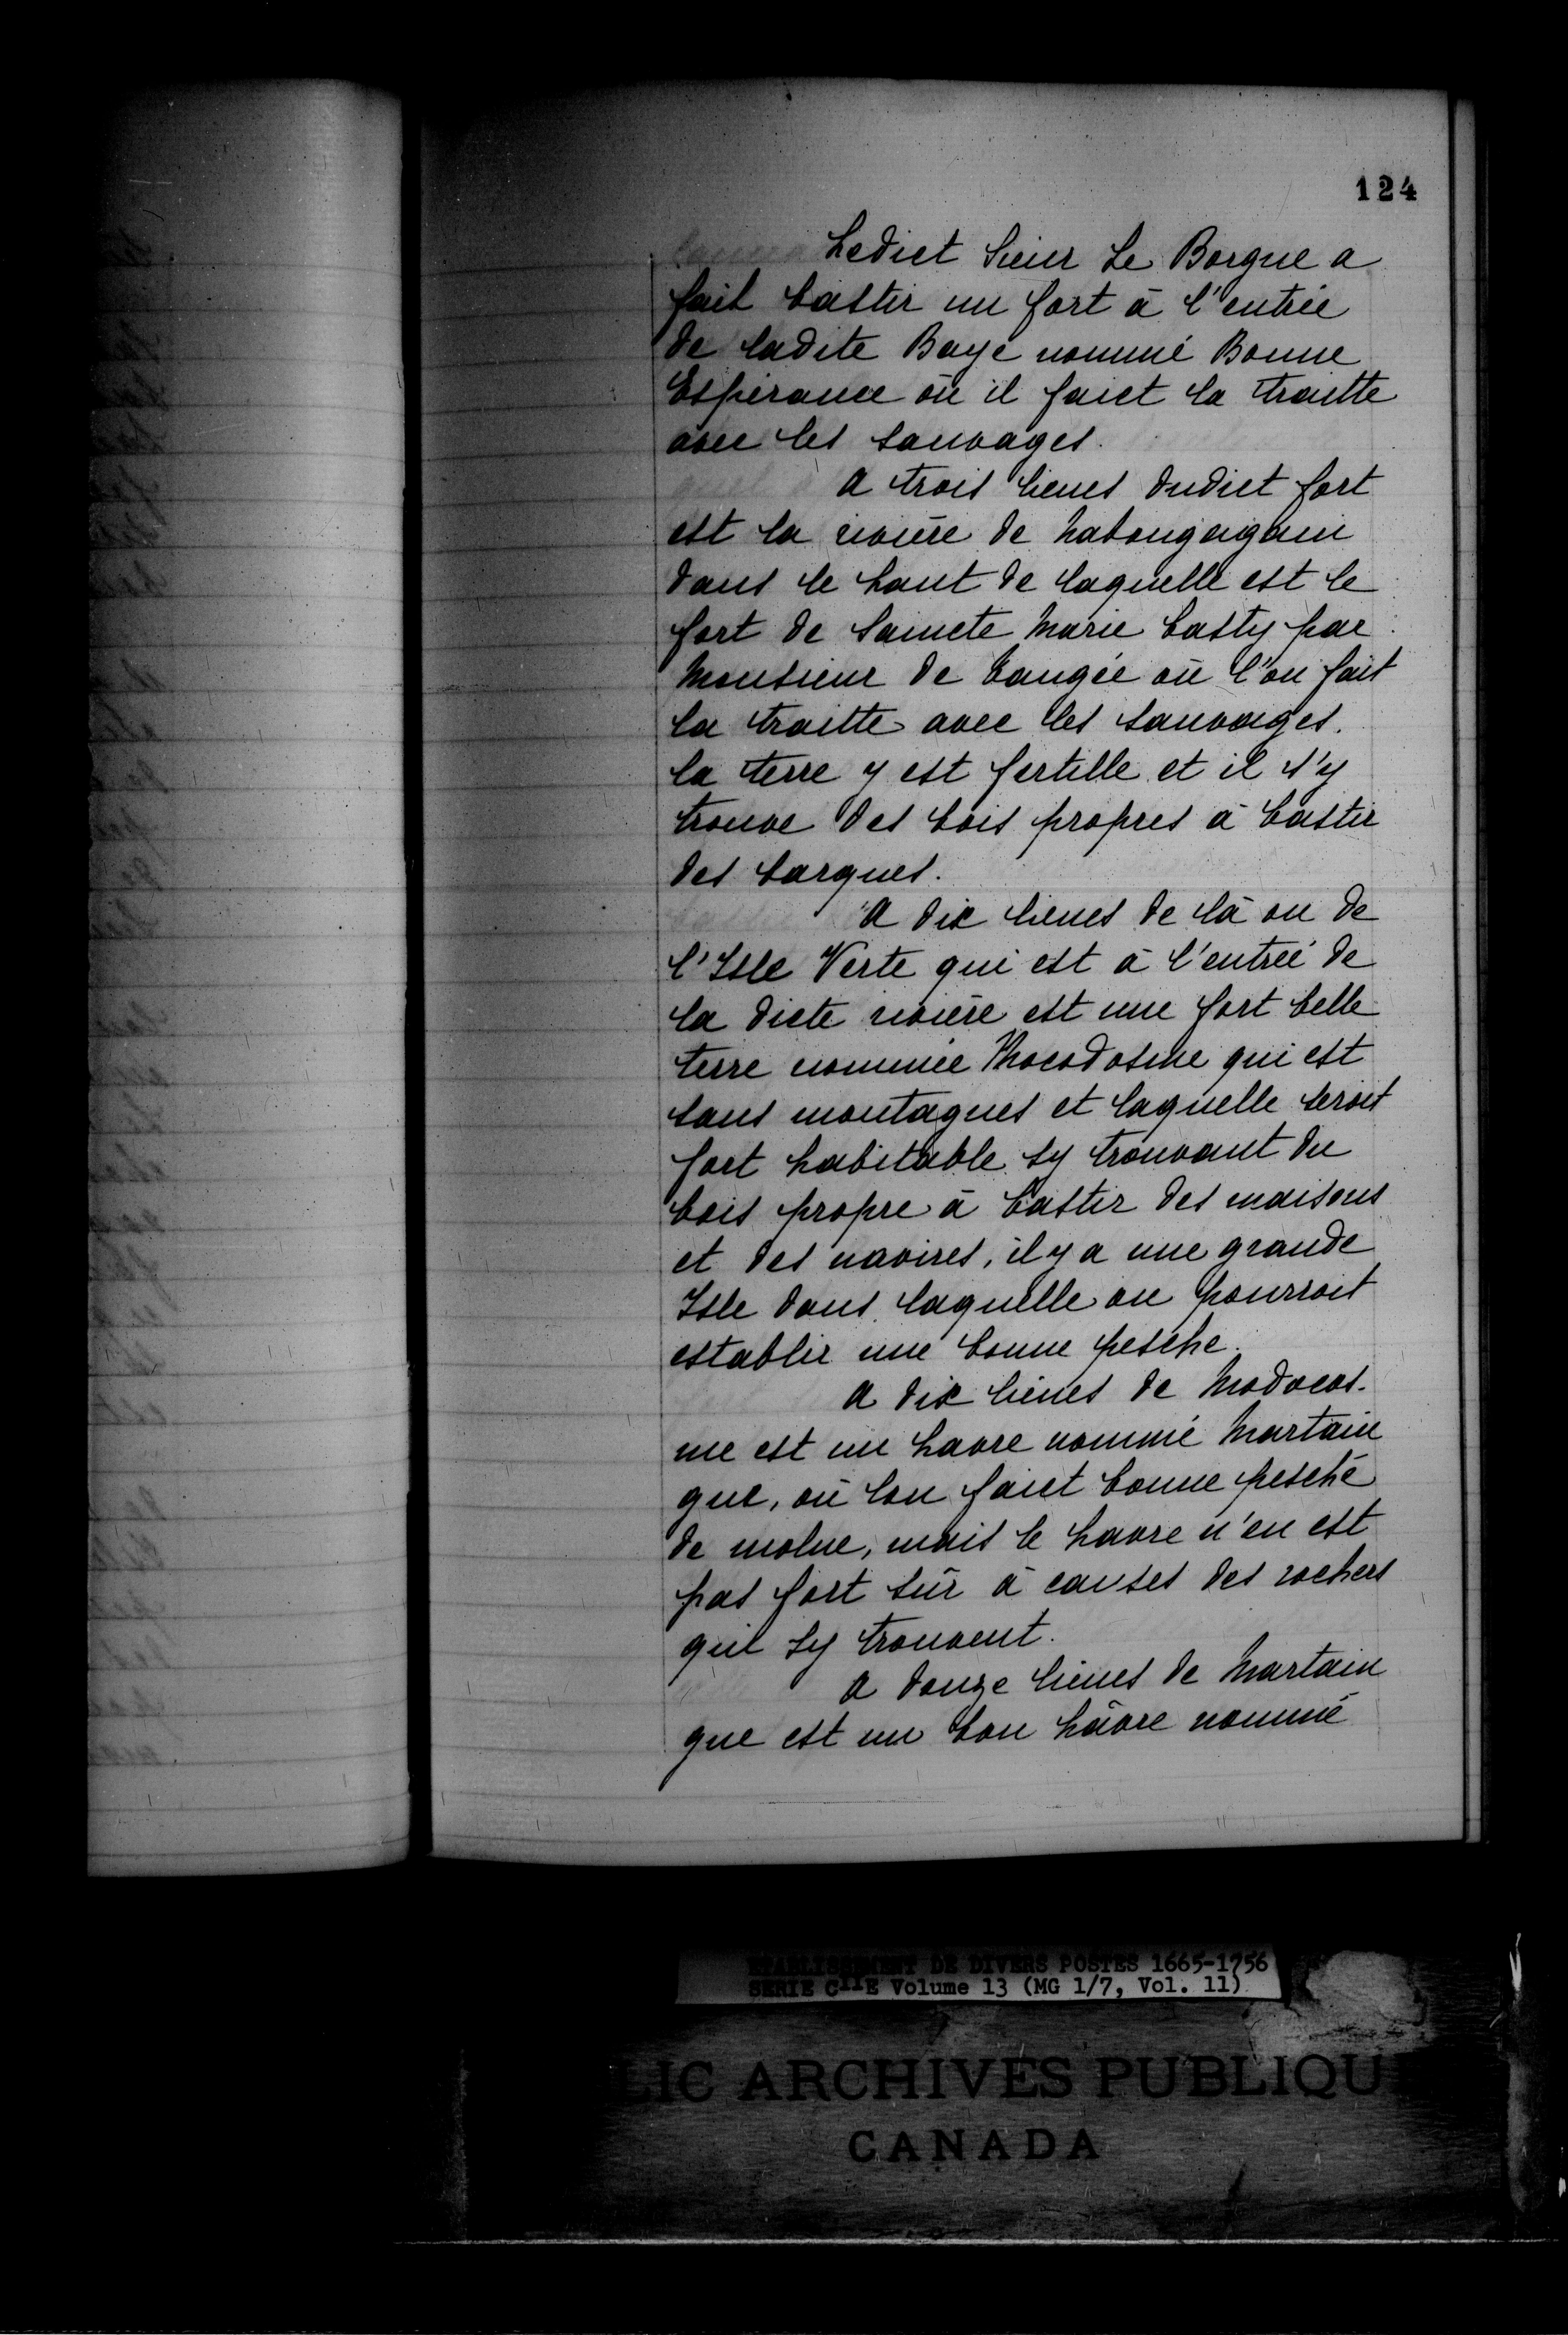 124
Ledict Sieur Le Borgne a
fait bastir un fort à l'entrée
de ladite Baye nommé Bonne
Espérance où il faict la traitte
avec les sauvages.
A trois lieues dudict fort
est la rivière de
dans le haut de laquelle est le
fort de Saincte Marie basty par
Monsieur de Cangée où l'on fait
la traitte avec les sauvages.
la terre y est fertille et il s'y
trouve des bois propres à bastir
des barques.
A dix lieues de là ou de
l'Isle Verte qui est à l'entrée de
la dicte rivière est une fort belle
terre nommée Mocodosme qui est
sans montagnes et laquelle seroit
fort habitable sy trouvant du
bois propre à bastir des maisons
et des navires, il y a une grande
Isle dans laquelle on pourroit
establir une bonne pesche.
A dix lieues de Modocos-
me est un havre nommé Martain
gue, où lon faict bonne pesche
de molue, mais le havre n'en est
pas fort sûr à causes des rochers
qui sy trouvent.
A douze lieues de Martain
gue est un bon hâvre nommé
ETABLISSEMENT DE DIVERS POSTES 1665-1756
SERIE C11E Volume 13 (MG 1/7, Vol. 11)
LIC ARCHIVES PUBLIQU
CANADA